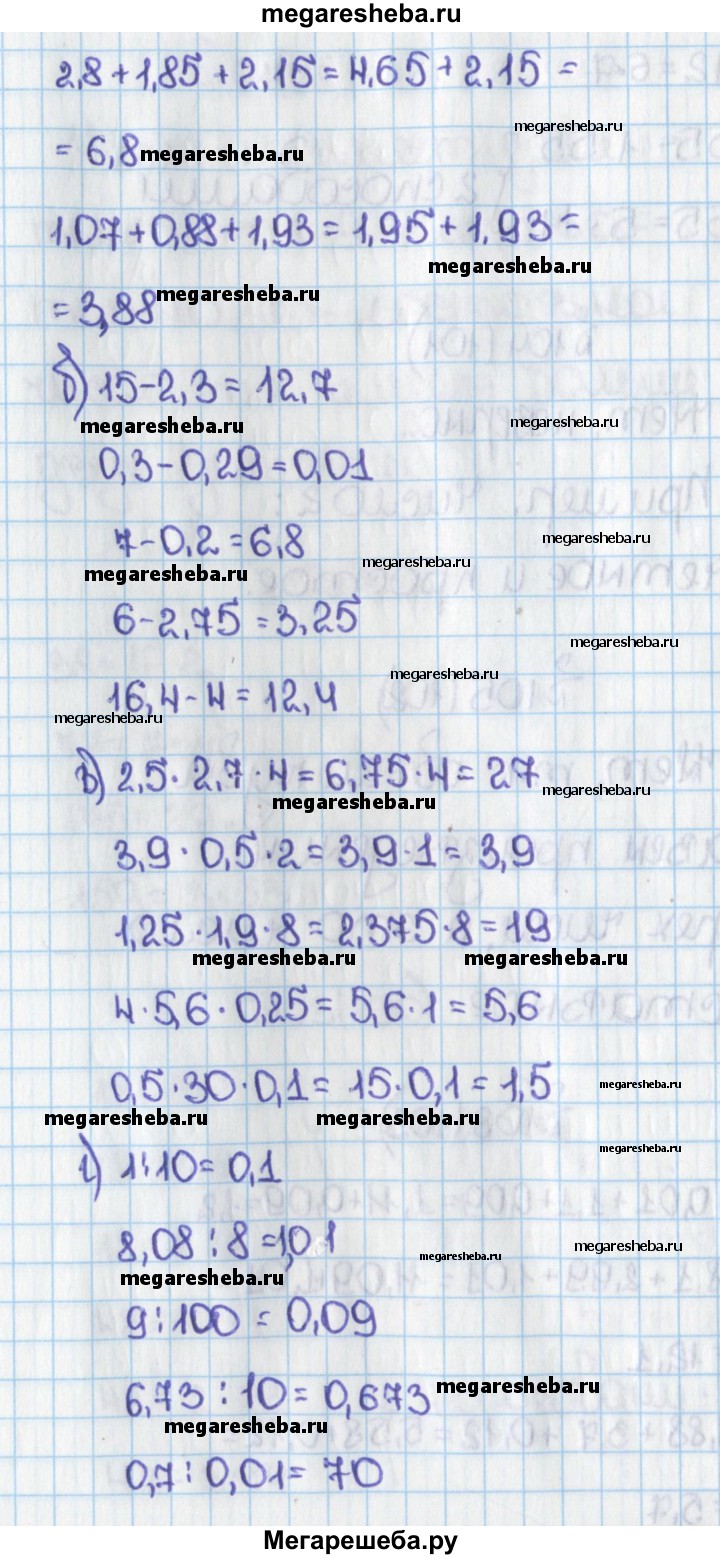 megaresheba.ru
2,8+1,85+2,15=4,65+2,15=
megaresheba.ru
=6,8 megaresheba.ru
1,07+0,88+1,93=1,95+1,93=
megaresheba.ru
megaresheba.ru
=3,88
б) 15-2,3=12,7
megaresheba.ru megaresheba.ru
0,3-0,29=0,01
7-0,2=6,8 megaresheba.ru
megaresheba.ru megaresheba.ru
6-2,75=3,25
megaresheba.ru
megaresheba.ru
16,4-4=12,4
megaresheba.ru
в) 2,5·2,7·4=6,75·4=27
megaresheba.ru megaresheba.ru
3,9·0,5·2=3,9·1=3,9
1,25·1,9·8=2,375·8=19
megaresheba.ru megaresheba.ru
4·5,6·0,25=5,6·1=5,6
0,5·30·0,1=15·0,1=1,5 megaresheba.ru
megaresheba.ru megaresheba.ru
megaresheba.ru
г) 1:10=0,1
8,08:8=1,01
megaresheba.ru
megaresheba.ru
9:100=0,09
6,73:10=0,673 megaresheba.ru
megaresheba.ru
0,7:0,01=70
Мегарешеба.ру